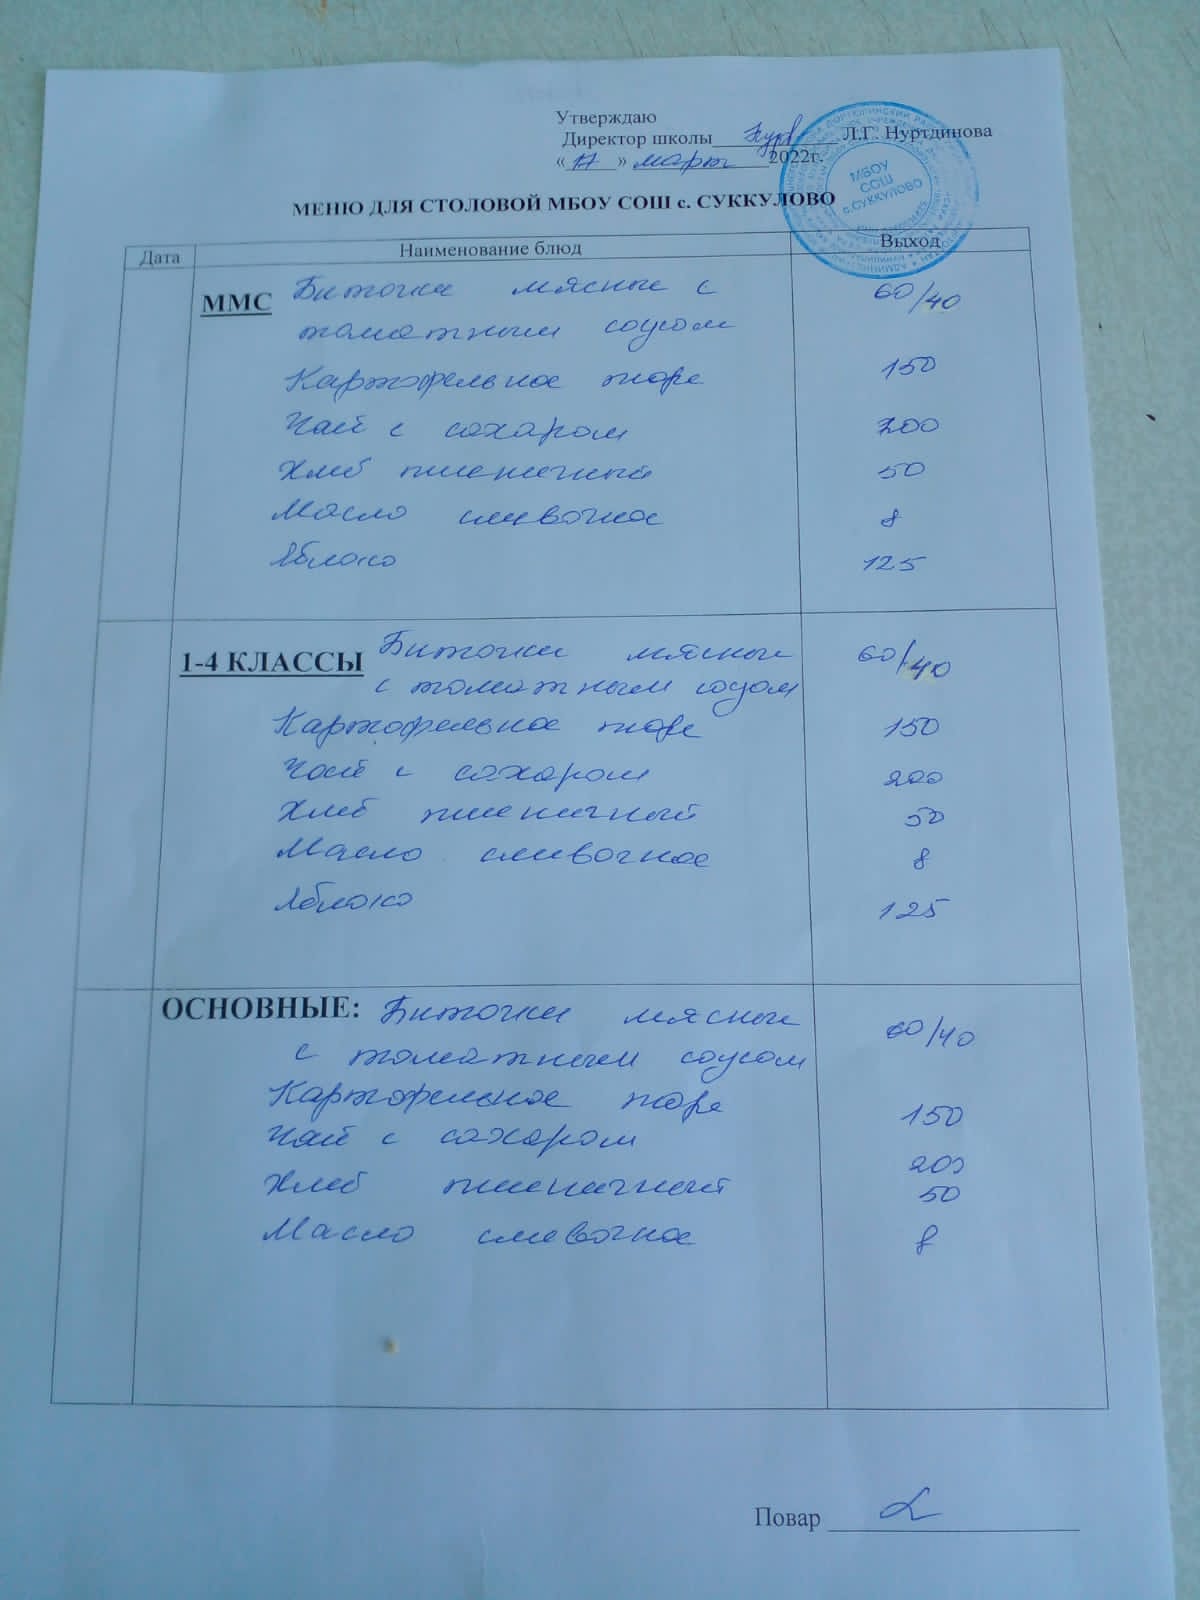 Утверждаю
Директор школы Л.Г. Нуртдинова
«17» марта 2022г.
МБОУ
СОШ
с.СУККУЛОВО
МЕНЮ ДЛЯ СТОЛОВОЙ МБОУ СОШ с. СУККУЛОВО
Дата Наименование блюд Выход
ММС Биточки мясные с 60/40
томатным соусом
Картофельное пюре 150
Чай с сахаром 200
Хлеб пшеничный 50
Масло сливочное 8
Яблоко 125
1-4 КЛАССЫ Биточки мясные 60/40
с томатным соусом
Картофельное пюре 150
Чай с сахаром 200
Хлеб пшеничный 50
Масло сливочное 8
Яблоко 125
ОСНОВНЫЕ: Биточки мясные 60/40
с томатным соусом
Картофельное пюре 150
Чай с сахаром 200
Хлеб пшеничный 50
Масло сливочное 8
Повар